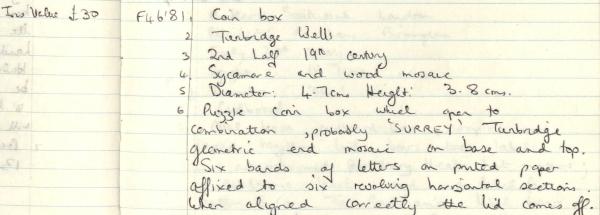 Ins Value £30 F46'81. Coin box
2 Tunbridge Wells
3 2nd half 19th century
4. Sycamore and wood mosaic
5 Diameter: 4.7cms Height: 3.8cms.
6 Puzzle coin box which open to
combination, probably 'SURREY'. Tunbridge
geometric end mosaic on base and top.
Six bands of letters on printed paper
affixed to six revolving horizontal sections.
When aligned correctly the lid comes off.